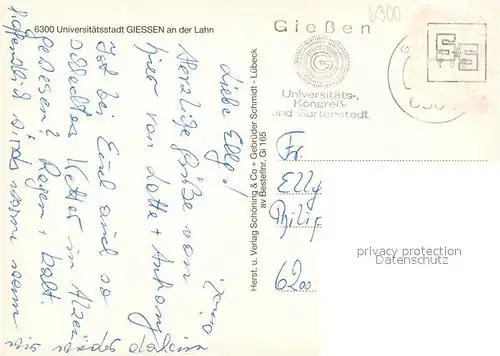 6300 Universitätsstadt GIESSEN an der Lahn
6300
Gießen
Universitäts-,
Kongreß-
und Gartenstadt
Liebe Elly!
Herzliche Grüße von
hier von Lotte + Antony
Ist bei Euch auch so
schlechtes Wetter in Alzei
gewesen? Regen + kalt.
hoffentlich wirds warm wenn
wir wieder daheim
Herst. u. Verlag Schöning & Co + Gebrüder Schmidt - Lübeck
av Bestellnr. Gi 165
Fr.
Elly
Philip
6200
privacy protection
Datenschutz